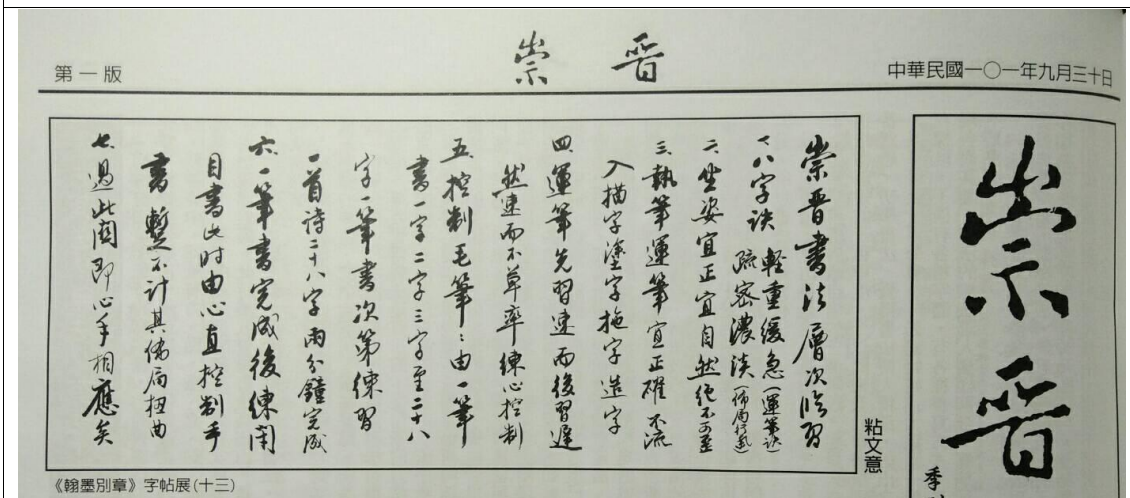 第一版
崇晉
中華民國一〇一年九月三十日
崇晉書法層次臨習
一、八字訣 輕重緩急(運筆訣)
疏密濃淡(佈局行氣)
二、坐姿宜正宜自然絕不可歪
三、執筆運筆宜正確不流
入描字塗字拖字造字
四、運筆先習速而後習遲
然速而不草率練心控制
五、控制毛筆:由一筆
書一字二字三字至二十八
字一筆書次第練習
一首詩二十八字兩分鐘完成
六、一筆書完成後練閉
目書此時由心直控制手
書暫不計其佈局扭曲
七、過此關即心手相應矣
粘文意
《翰墨別章》字帖展(十三)
崇晉
季